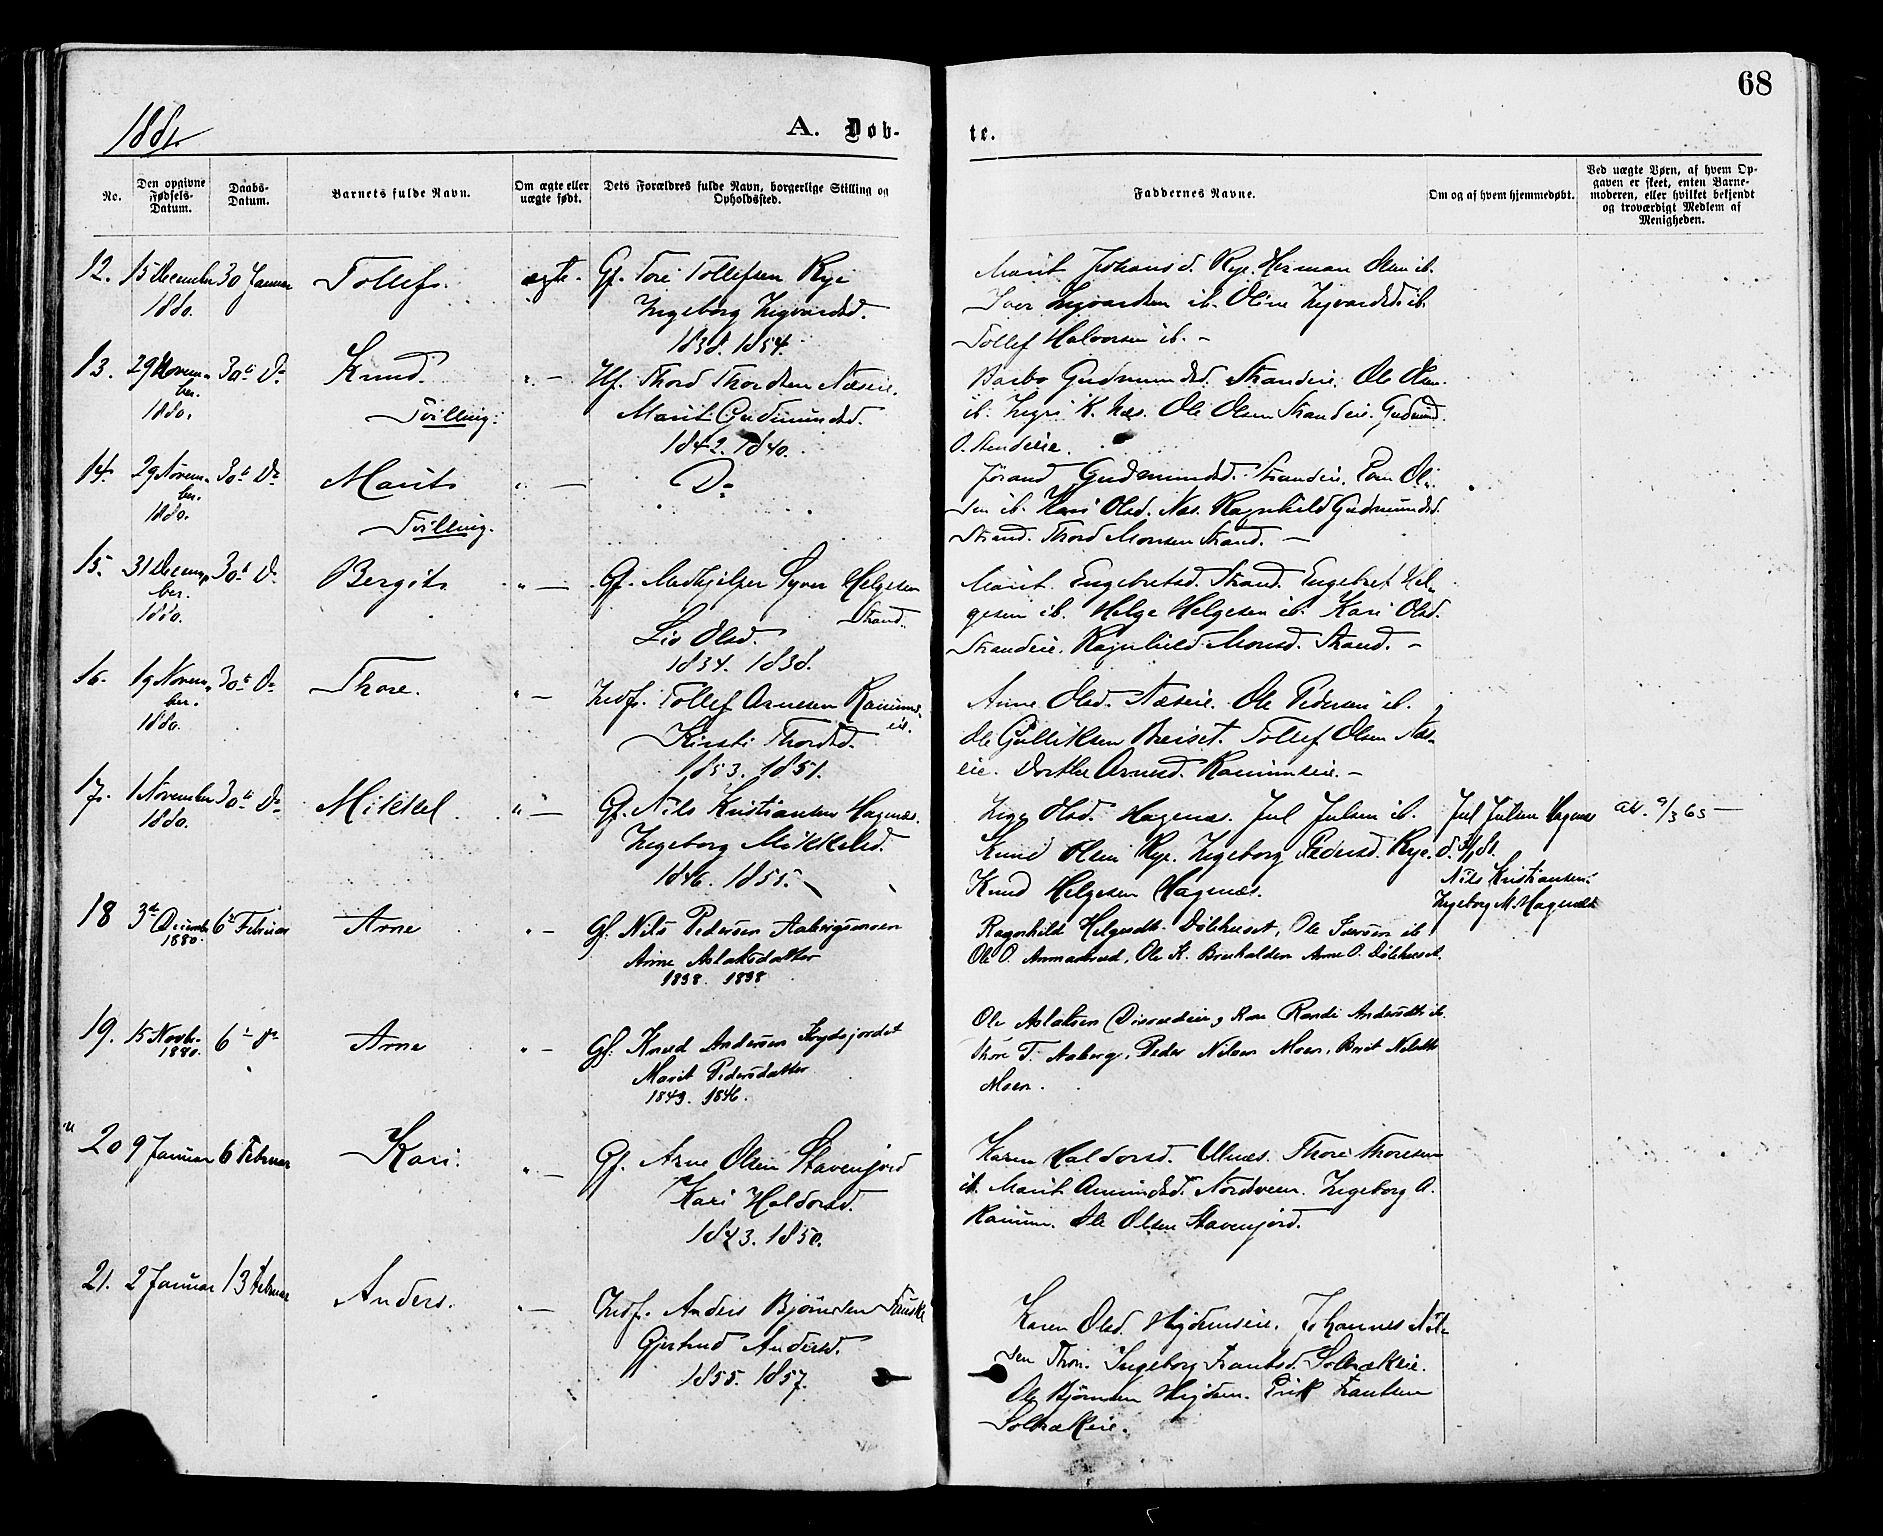 68
1881.
A. Døb-
te.
No.
Den opgivne Fødsels-Datum.
Daabs-Datum.
Barnets fulde Navn.
Om ægte eller uægte født.
Dets Forældres fulde Navn, borgerlige Stilling og Opholdssted.
Faddernes Navne.
Om og af hvem hjemmedøbt.
Ved uægte Børn, af hvem Op-
gaven er skeet, enten Barne-
moderen, eller hvilket bekjendt
og troværdigt Medlem af
Menigheden.
12. 15 December 30 Januar Tollef. ægte. Gf. Tore Tollefsen Rye
1880. Ingeborg Ingvardsd.
1838. 1854.
Marit Johansd. Rye. Herman Olsen ib.
Iver Ingvardsen ib. Oline Ingvardsd. ib.
Tollef Halvorsen ib. -
13. 29 Novem- 30te Do Knud. " — Hf. Thord Thordsen Næseie.
ber. 1880. Tvilling. Marit Gudmundsd.
1842. 1840.
Barbo Gudmundsd. Strandeie. Ole Olsen
ib. Ingri K. Næs. Ole Olsen Strandeie. Gudmund
O. Strandeie.
14. 29 Novem- 30te Do Marit. " — Do
ber. 1880. Tvilling.
Jørand Gudmundsd. Strandeie. Ole
sen ib. Kari Olsd. Næs. Ragnhild Gudmundsd.
Strand. Thord Monsen Strand. —
15. 31 Decem- 30te Do Bergit. " — Gf. Medhjelper Syver Helgesen
ber. 1880. Strand.
Liv Olsd.
1834. 1838.
Marit Engebretsd. Strand. Engebret Hel-
gesen ib. Helge Helgesen ib. Kari Olsd.
Strandeie. Ragnhild Monsd. Strand. -
16. 19 Novem- 30te Do Thore. " — Indf. Tollef Arnesen Ramms-
ber. 1880. eie.
Kirsti Thordsd.
1853. 1851.
Anne Olsd. Næseie. Ole Pedersen ib.
Ole Gulliksen Beiset. Tollef Olsen Næs-
eie. Dorthe Arnesd. Rammseie. —
17. 1 November 30te Do Mikkel. " — Gf. Nils Kristiansen Hagenæs.
1880. Ingeborg Mikkelsd.
1846. 1855.
Inge Olsd. Hagenæs. Jul Julsen ib.
Knud Olsen Rye. Ingeborg Pedersd. Rye.
Knud Helgesen Hagenæs.
Jul Julsen Hagenæs
Nils Kristiansen.
Ingeborg M. Hagenæs
18 3de December 6te Februar Arne " — Gf. Nils Pedersen Aabergsmoen
1880. Anne Aslaksdatter
1838. 1838
Ragnhild Helgesdtr. Dølehuset, Ole Iversen ib
Ole O. Arnesen Dølehuset.
19. 15 Novbr. 6te Do Arne " — Gf. Knud Andersen Frydsjordet
1880. Marit Pedersdatter
1849. 1846.
Ole Aslaksen Kone Randi Andersdtr. ib.
Thore T. Aaberg, Peder Nilsen Moen, Berit Nilsdtr.
Moen.
20 9 Januar 6 Februar Kari. " — Gf. Arne Olsen Stavenjord
Kari Haldorsd.
1843. 1850.
Karen Haldorsd. Ulnæs. Thore Thoresen
ib. Marit Amundsd. Nordsveen. Ingeborg A.
Ramm. Ole Olsen Stavenjord.
21. 2 Januar 13 Februar Anders. " — Indf. Anders Bjørnsen Fauske
Gjertrud Andersd.
1855. 1857.
Karen Olsd. Johannes Nil-
sen Thon. Ingeborg Frantsd. Solbækeie.
Ole Bjørnsen Erik Frantsen
Solbækeie.